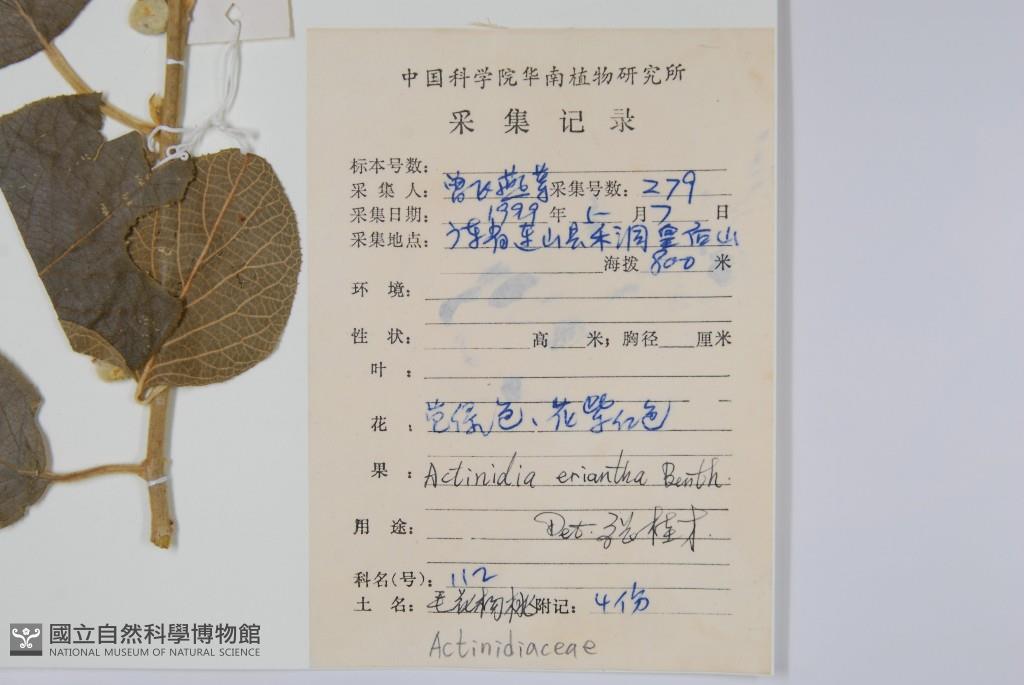 中国科学院华南植物研究所
采集记录
标本号数:
采集人: 曾飞燕等 采集号数: 279
采集日期: 1999年5月7日
采集地点: 广东省连山县禾洞皇后山
海拨 800 米
环境:
性状: 高 米; 胸径 厘米
叶:
花: 色、花紫红色
果: Actinidia eriantha Benth.
用途: Det. 张桂才.
科名(号): 112
土名: 毛花猕桃 附记: 4份
Actinidiaceae
國立自然科學博物館
NATIONAL MUSEUM OF NATURAL SCIENCE